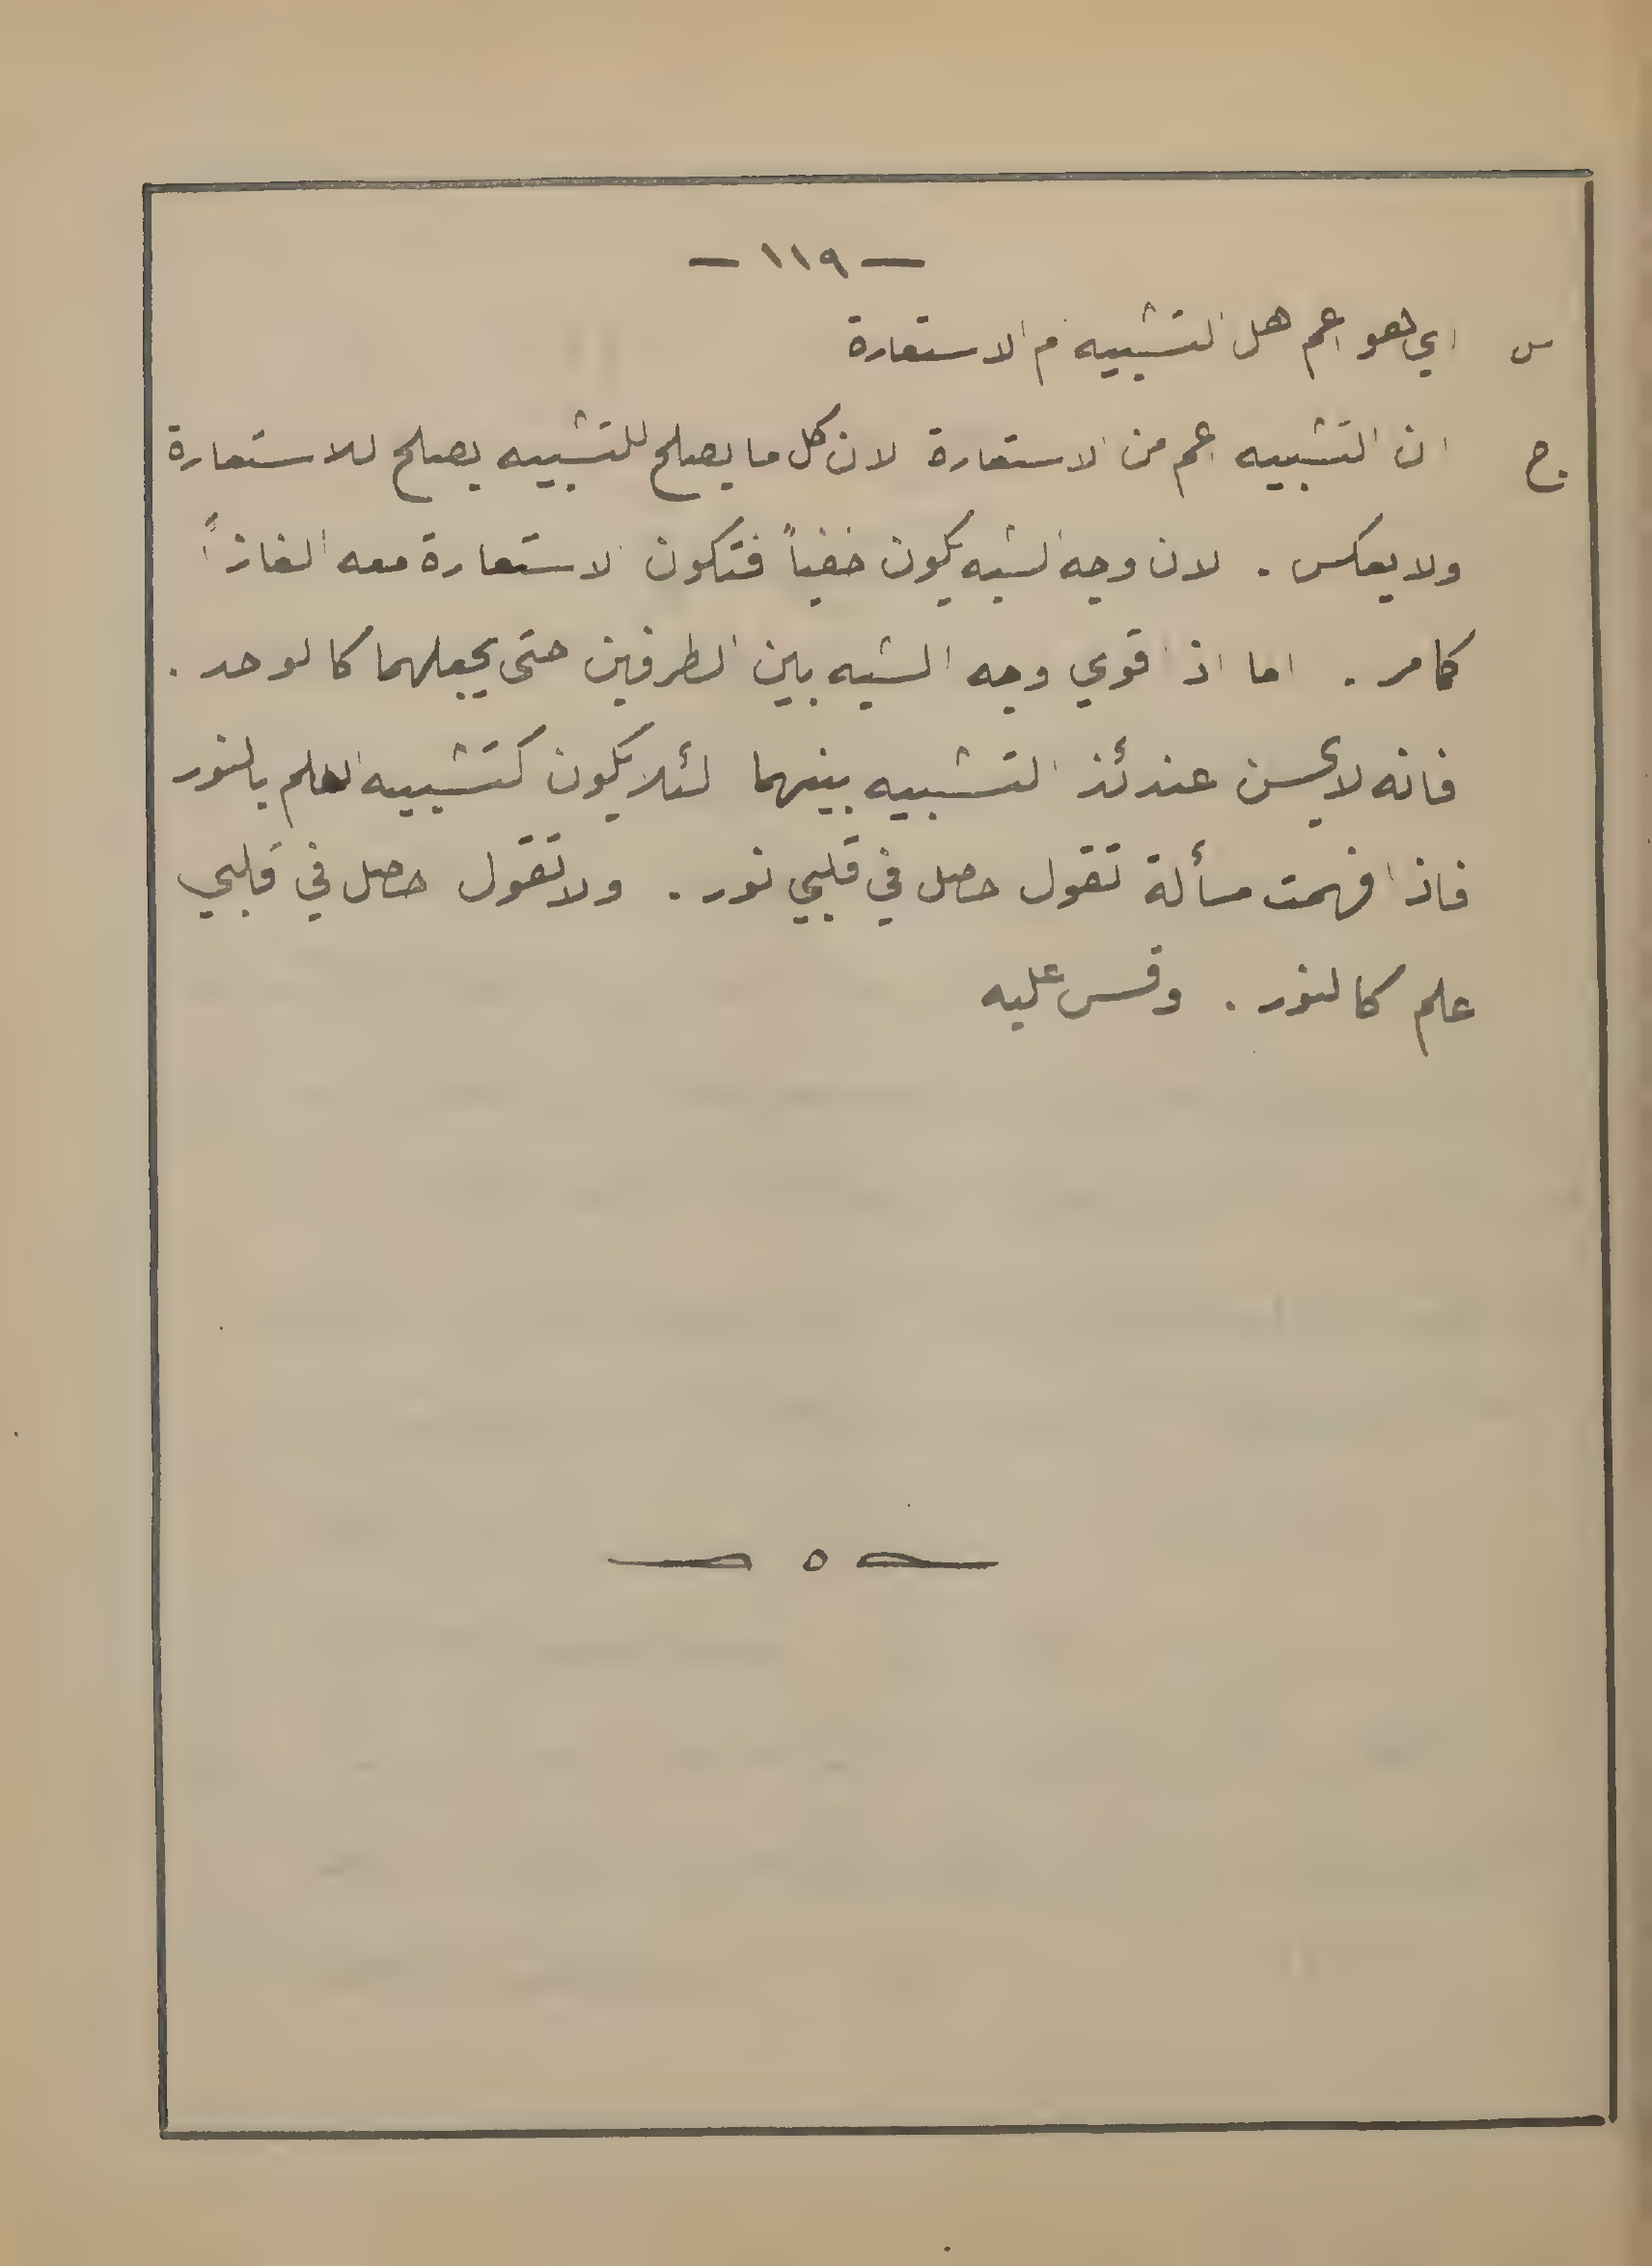 — ١١٩ —
س اي هو اعم هل التشبيه ام الاستعارة
ج ان التشبيه اعم من الاستعارة لان كل ما يصلح للتشبيه يصلح للاستعارة
ولا يعكس . لان وجه الشبه يكون خفياً فتكون الاستعارة معه الغازاً
كما مر . اما اذا قوي وجه الشبه بين الطرفين حتى يجعلهما كالوحد .
فانه لا يحسن عندئذ التشبيه بينهما لئلا يكون كتشبيه العلم بالنور
فاذا فهمت مسألة تقول حصل في قلبي نور . ولا تقول حصل في قلبي
علم كالنور . وقس عليه